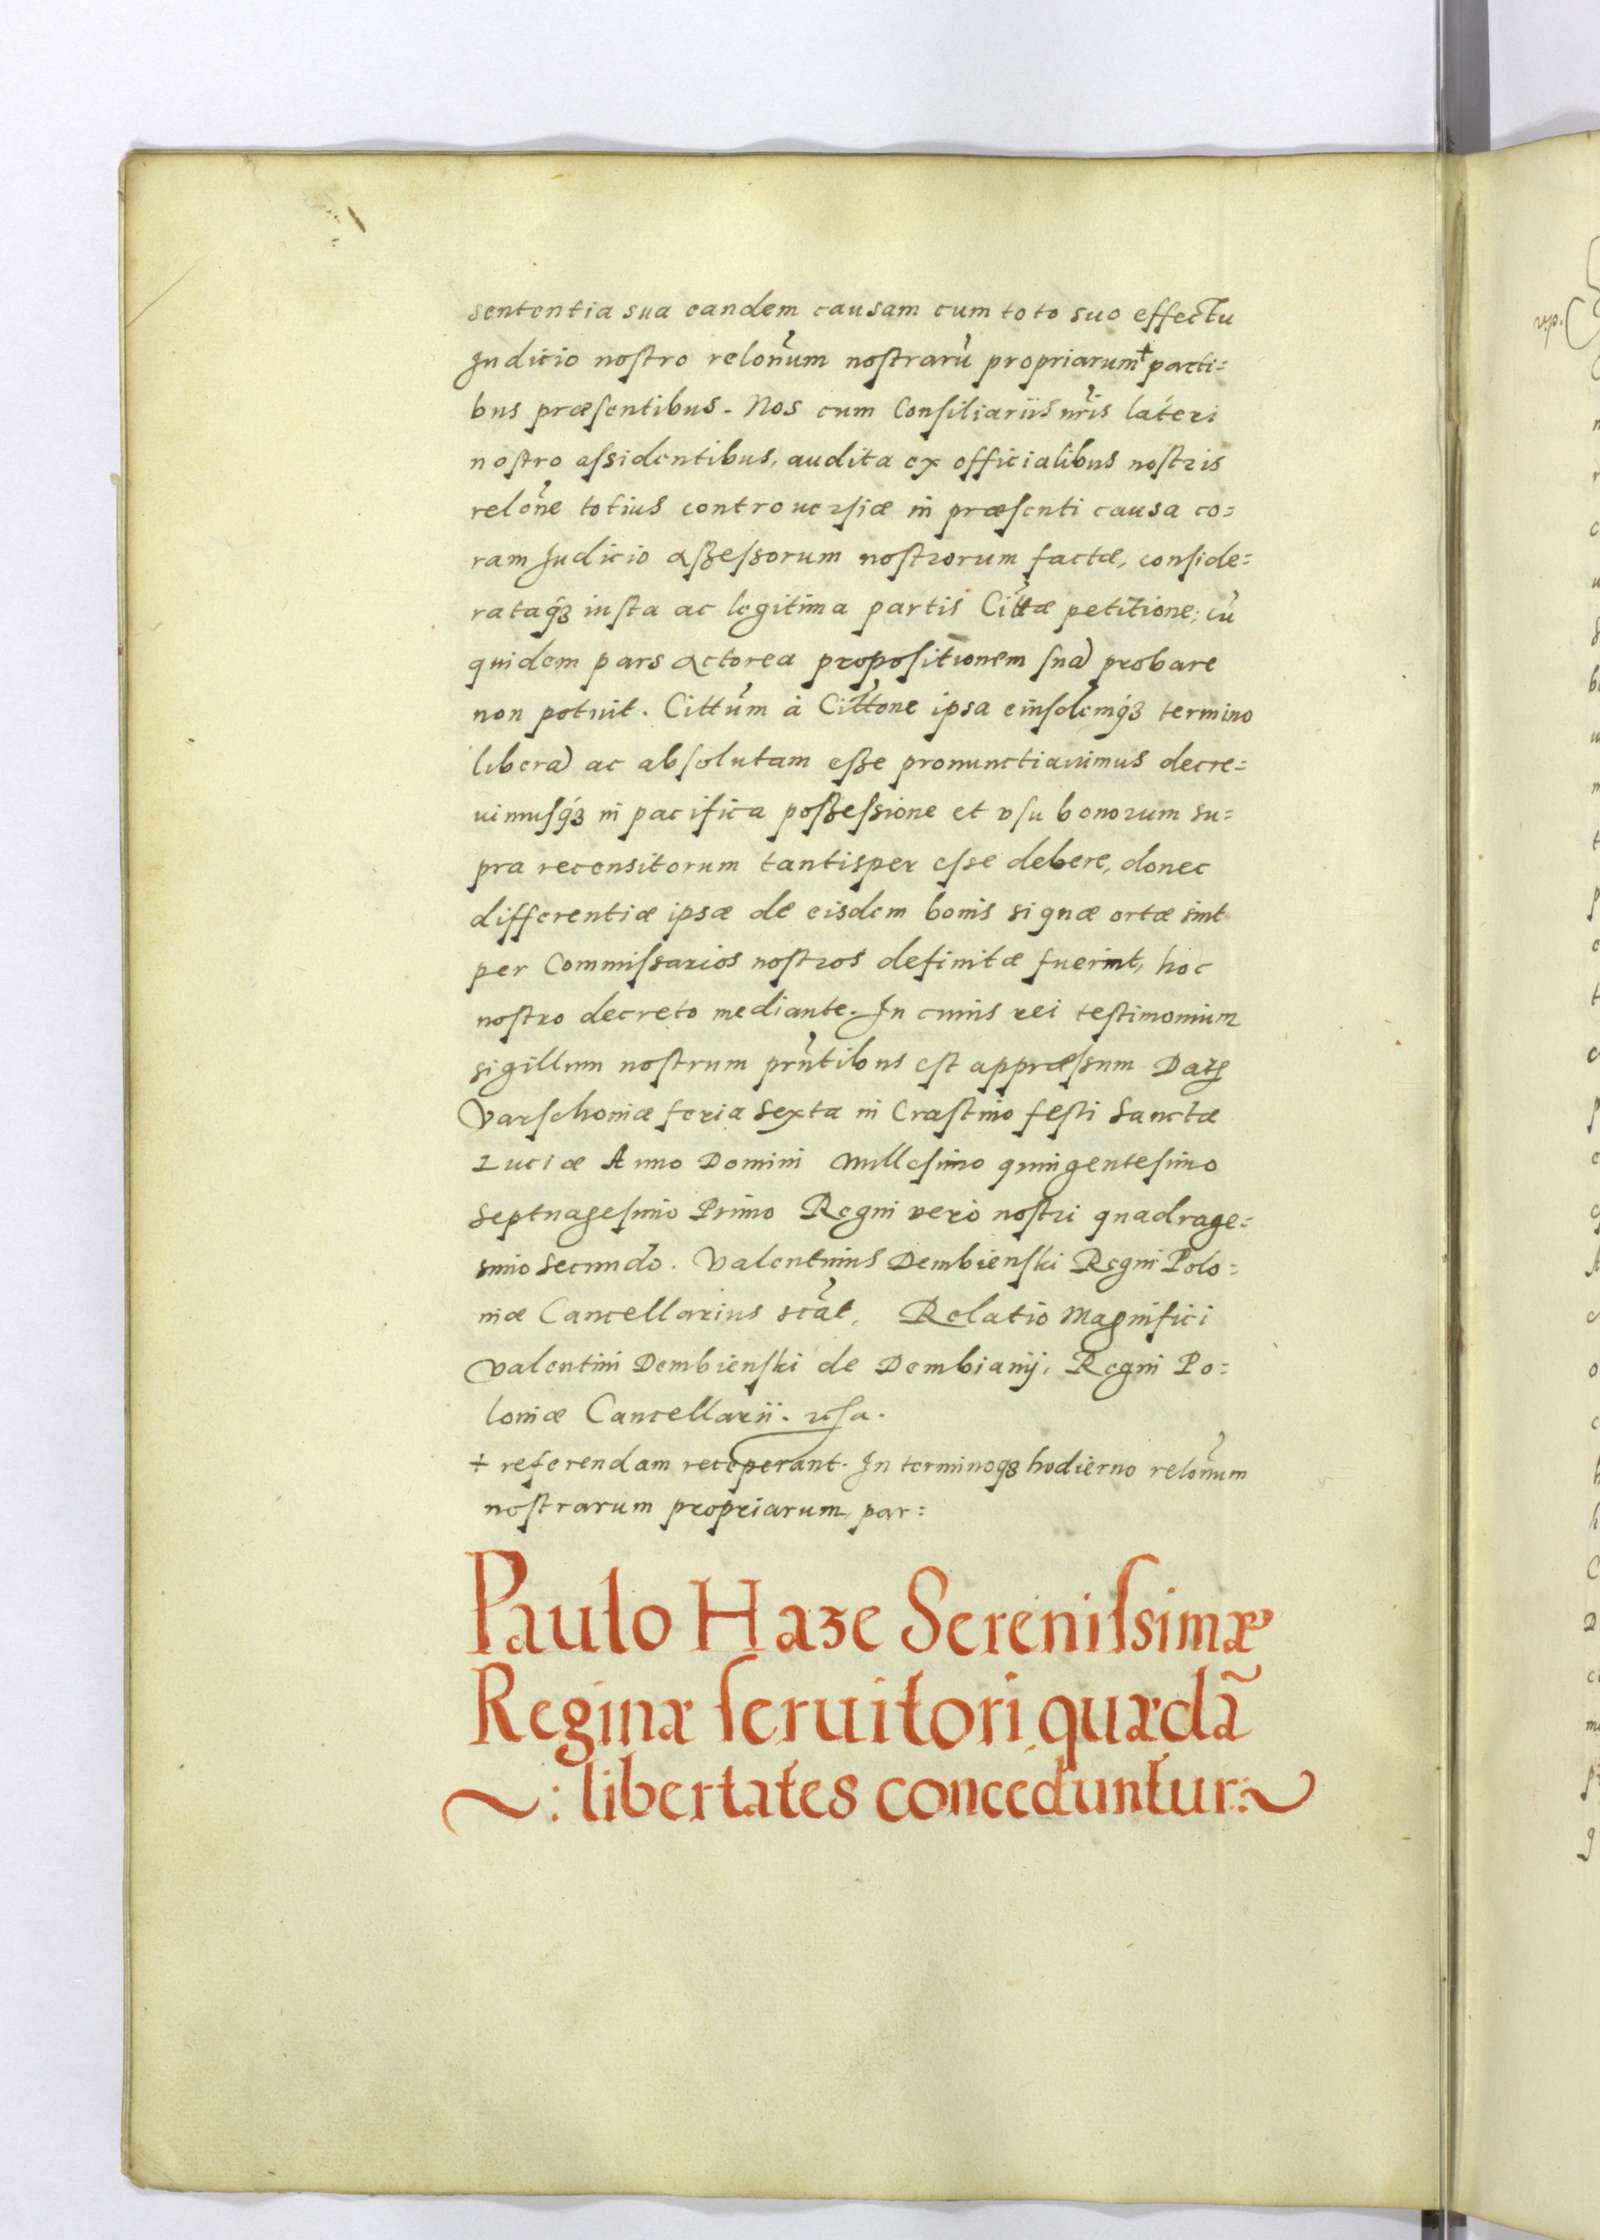 sententia sua eandem causam cum toto suo effectu
Iudicio nostro relonum nostrarū propriarum + parti=
bus præsentibus. Nos cum Consiliariis nris lateri
nostro assidentibus, audita ex officialibus nostris
relone totius controuersiæ in præsenti causa co=
ram Iudicio assessorum nostrorum factæ, conside=
rataq3 iusta ac legitima partis Cittæ petitione, cū
quidem pars actorea propositionem suā probare
non potuit. Cittum à Cittone ipsa eiusdemq3 termino
liberā ac absolutam esse pronunctiauimus decre=
uimusq3 in pacifica possessione et vsu bonorum su=
pra recensitorum tantisper esse debere, donec
differentiæ ipsæ de eisdem bonis si quæ ortæ sint
per Commissarios nostros definitæ fuerint, hoc
nostro decreto mediante. In cuius rei testimonium
sigillum nostrum prntibus est appræssum Dat
Varschouiæ feria sexta in Crastino festi Sanctæ
Luciæ Anno Domini Millesimo quingentesimo
Septuagesimo Primo Regni vero nostri quadrage=
simo secundo. Valentinus Dembienski Regni Polo=
niæ Cancellarius scat. Relatio Magnifici
Valentini Dembienski de Dembiany, Regni Po=
loniæ Cancellarii.
+ referendam receperant. In terminoq3 hodierno relonum
nostrarum propriarum, par=
Paulo Haze Serenissimæ
Reginæ seruitori quædā
: libertates conceduntur:
vp.